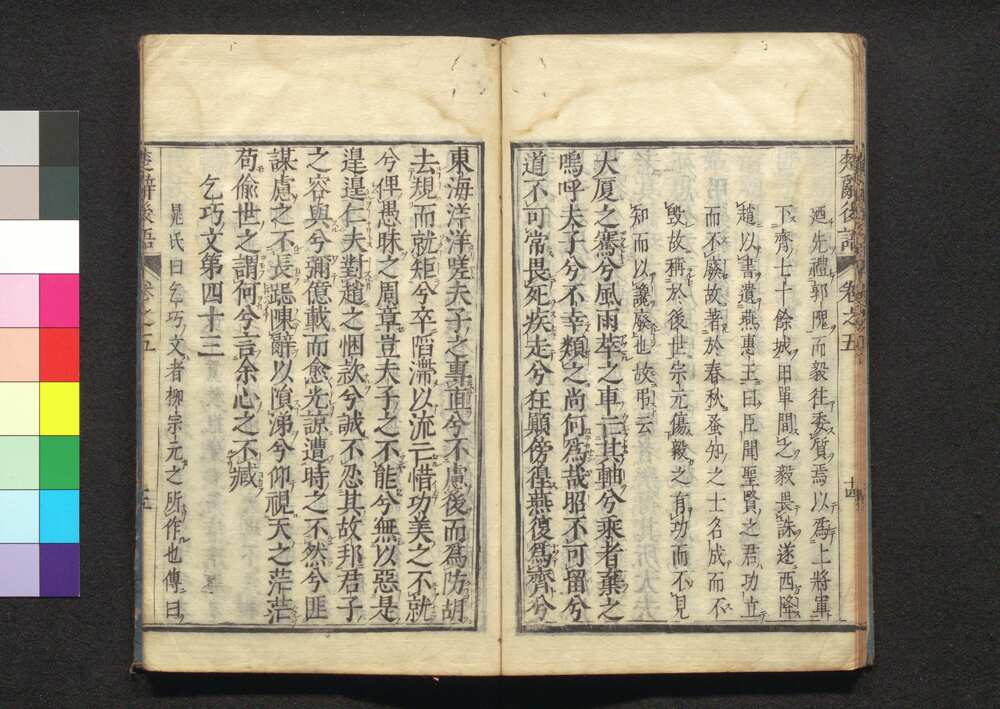 楚辭後語 卷之五 十四
廼先禮郭隗而毅往委質焉以爲上將軍
下齊七十餘城田單間之毅畏誅遂西降
趙以書遺燕惠王曰臣聞聖賢之君功立
而不廢故著於春秋蚤知之士名成而不
毀故稱於後世宗元傷毅之有功而不見
知而以讒廢也故弔云
大厦之騫兮風雨萃之車亡其軸兮乘者棄之
嗚呼夫子兮不幸類之尚何爲哉昭不可留兮
道不可常畏死疾走兮狂顧傍徨燕復爲齊兮
東海洋洋嗟夫子之專直兮不慮後而爲防胡
去規而就矩兮卒陷滯以流亡惜功美之不就
兮俾愚昧之周章豈夫子之不能兮無以惡是
遑遑仁夫對趙之悃款兮誠不忍其故邦君子
之容與兮彌億載而愈光諒遭時之不然兮匪
謀慮之不長跽陳辭以隕涕兮仰視天之茫茫
苟偷世之謂何兮言余心之不臧
乞巧文第四十三
晁氏曰乞巧文者柳宗元之所作也傳曰
楚辭後語 卷之五 十五